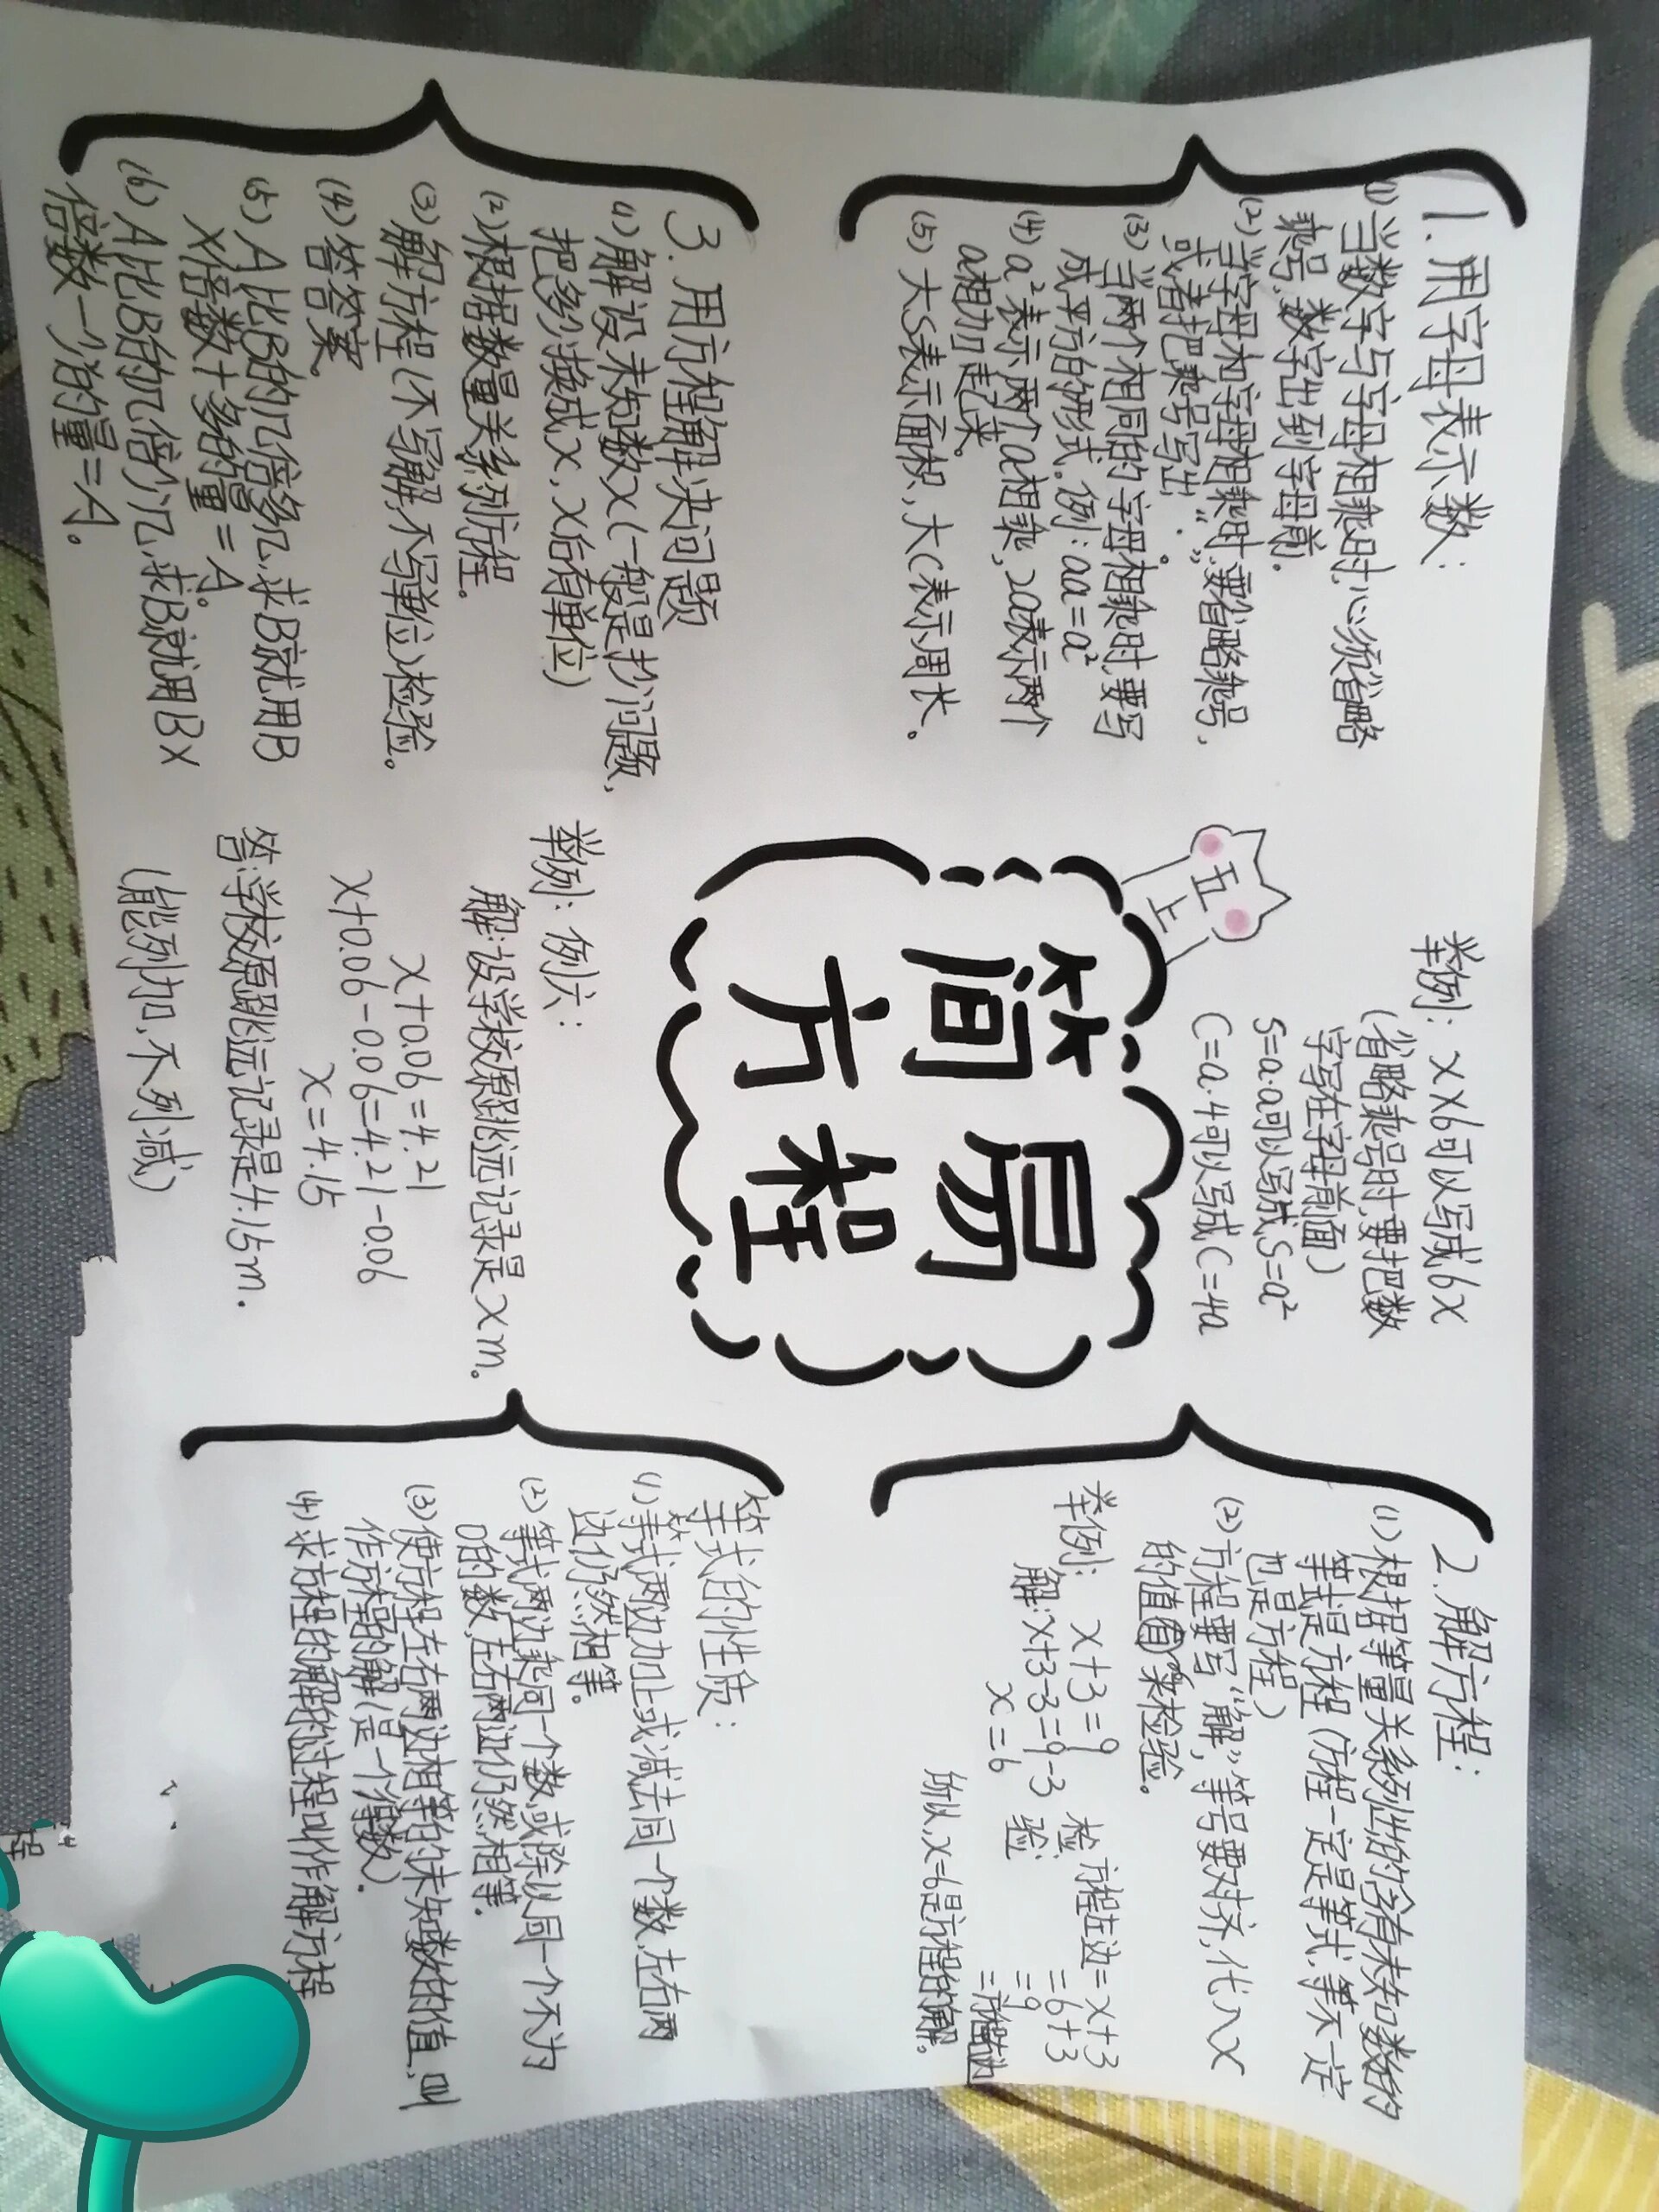 简易
方程
五
上
1.用字母表示数:
(1)当数字与字母相乘时,心须省略
乘号,数字出到字母前.
(2)当字母和字母相乘时,要省略乘号,
或者把乘号写出“·”。
(3)当两个相同的字母相乘时,要写
成平方的形式。例:aa=a²
(4)a²表示两个a相乘,2a表示两个
a相加起来。
(5)大S表示面积,大C表示周长。
举例:x×6可以写成6x
(省略乘号时,要把数
字写在字母前面)
S=a.a可以写成S=a²
C=a.4可以写成C=4a
2.解方程:
(1)根据等量关系列出的含有未知数的
等式是方程(方程一定是等式,等不一定
也是方程)
(2)方程要写“解”,等号要对齐,代入x
的值来检验。
举例: x+3=9
解:x+3-3=9-3
x=6
检
验
方程左边=x+3
=6+3
=9
=方程右边
所以,x=6是方程的解。
3.用方程解决问题
(1)解设未知数x(一般是抄问题,
把多少换成x,x后有单位)
(2)根据数量关系列方程。
(3)解方程(不写解,不写单位)检验。
(4)答答案。
(5)A比B的几倍多几,求B就用B
×倍数+多的量=A。
(6)A比B的几倍少几,求B就用B×
倍数-少的量=A。
举例:例六:
解:设学校原跳远记录是xm。
x+0.06=4.21
x+0.06-0.06=4.21-0.06
x=4.15
答:学校原跳远记录是4.15m.
(能列加,不列减)
等式的性质:
(1)等式两边加上或减法同一个数,左右两
边仍然相等。
(2)等式两边乘同一个数,或除以同一个不为
0的数,左右两边仍然相等.
(3)使方程左右两边相等的未知数的值,叫
作方程的解(是一个得数).
(4)求方程的解的过程叫作解方程